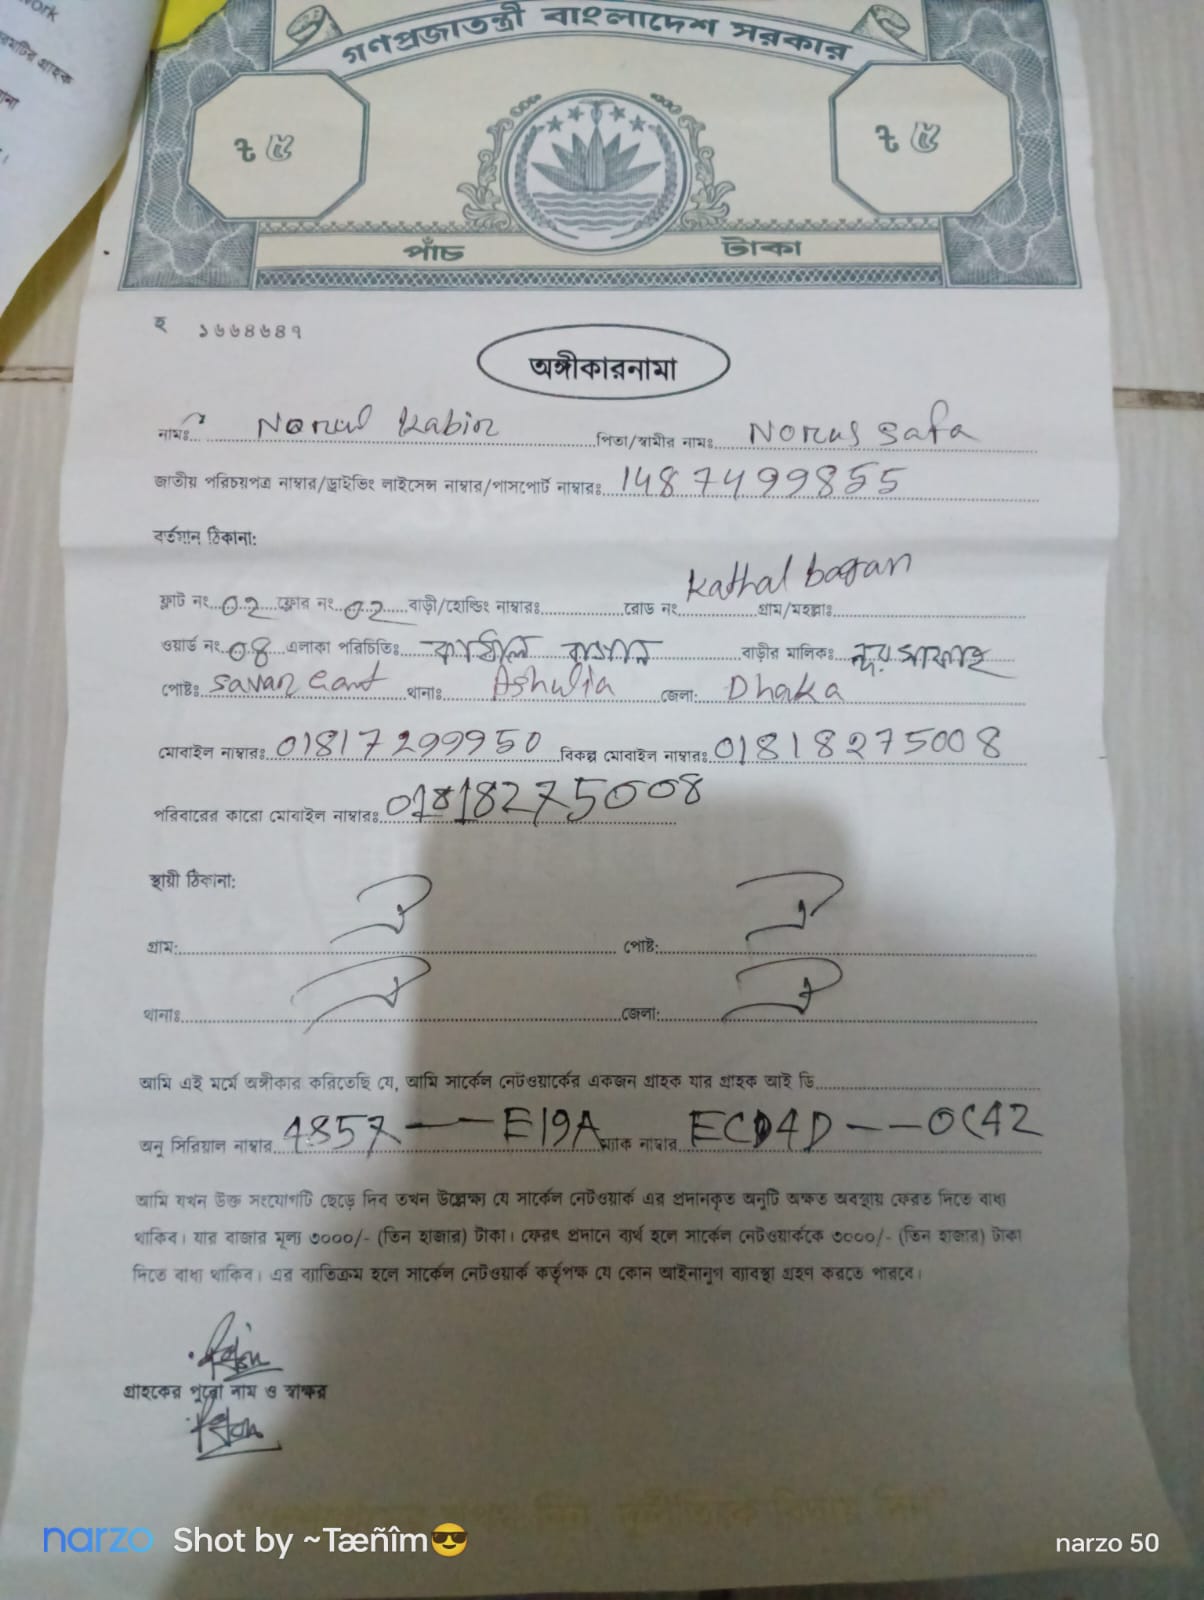 work
গ্রাহক
গণপ্রজাতন্ত্রী বাংলাদেশ সরকার
৳ ৫ ৳ ৫
পাঁচ টাকা
হ ১৬৬৪৬৪৭
অঙ্গীকারনামা
নামঃ Norul Kabir পিতা/স্বামীর নামঃ Norus safa
জাতীয় পরিচয়পত্র নাম্বার/ড্রাইভিং লাইসেন্স নাম্বার/পাসপোর্ট নাম্বারঃ 1487499855
বর্তমান ঠিকানা:
ফ্লাট নং 02 ফ্লোর নং 02 বাড়ী/হোল্ডিং নাম্বারঃ রোড নং Kathal bagan গ্রাম/মহল্লাঃ
ওয়ার্ড নং 08 এলাকা পরিচিতিঃ কাঠাল বাগান বাড়ীর মালিকঃ নুর সাফাহ
পোষ্টঃ Savar Cant থানাঃ Ashulia জেলা: Dhaka
মোবাইল নাম্বারঃ 01817299950 বিকল্প মোবাইল নাম্বারঃ 01818275008
পরিবারের কারো মোবাইল নাম্বারঃ 01818275008
স্থায়ী ঠিকানা:
গ্রাম: পোষ্ট:
থানাঃ জেলা:
আমি এই মর্মে অঙ্গীকার করিতেছি যে, আমি সার্কেল নেটওয়ার্কের একজন গ্রাহক যার গ্রাহক আই ডি
অনু সিরিয়াল নাম্বার 4857 — E19A ম্যাক নাম্বার ECD4D -- 0C42
আমি যখন উক্ত সংযোগটি ছেড়ে দিব তখন উল্লেক্ষ্য যে সার্কেল নেটওয়ার্ক এর প্রদানকৃত অনুটি অক্ষত অবস্থায় ফেরত দিতে বাধ্য
থাকিব। যার বাজার মূল্য ৩০০০/- (তিন হাজার) টাকা। ফেরৎ প্রদানে ব্যর্থ হলে সার্কেল নেটওয়ার্ককে ৩০০০/- (তিন হাজার) টাকা
দিতে বাধ্য থাকিব। এর ব্যাতিক্রম হলে সার্কেল নেটওয়ার্ক কর্তৃপক্ষ যে কোন আইনানুগ ব্যাবস্থা গ্রহণ করতে পারবে।
গ্রাহকের পুরো নাম ও স্বাক্ষর
narzo Shot by ~Tæñîm😎 narzo 50